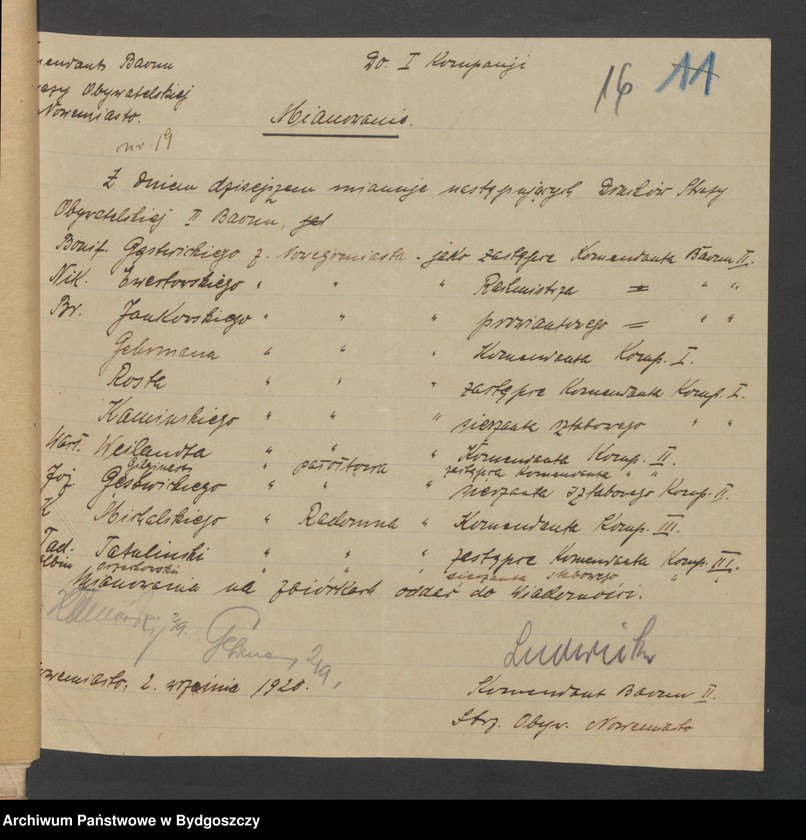 mendant Baonu
Do. I Kompanji
16 11
Straży Obywatelskiej
Nowemiasto.
Mianowanie.
nr 19
Z dniem dzisiejszem mianuję następujących Druhów Straży
Obywatelskiej II Baonu,
Bonif. Gęstwickiego z. Nowegomiasta - jako zastępcę Komendanta Baonu II.
Nik. Ewertowskiego " " " Rachmistrza = " "
Br. Jankowskiego " " " prowiantowego = " "
Gehrmana " " " Komendanta Komp. I.
Rosta " " " zastępcę Komendanta Komp. I.
Kaminskiego " " " sierżanta sztabowego " "
Weilandta " " " Komendanta Komp. II.
" Pacółtowa " zastępca Komendanta " "
Józ. Gęstwickiego " " " sierżanta sztabowego Komp. II.
Michalskiego " Radomna " Komendanta Komp. III.
Tad. Tatulinski " " " zastępcę Komendanta Komp. III.
" " " sierżanta stabowego " "
Mianowania na zbiórkach oddać do wiadomości.
Kamiński 2/9.
Gehrman 2/9.
Ludwicki
Nowemiasto, 2. września 1920.
Komendant Baonu II.
Strż. Obyw. Nowemiasto
Archiwum Państwowe w Bydgoszczy